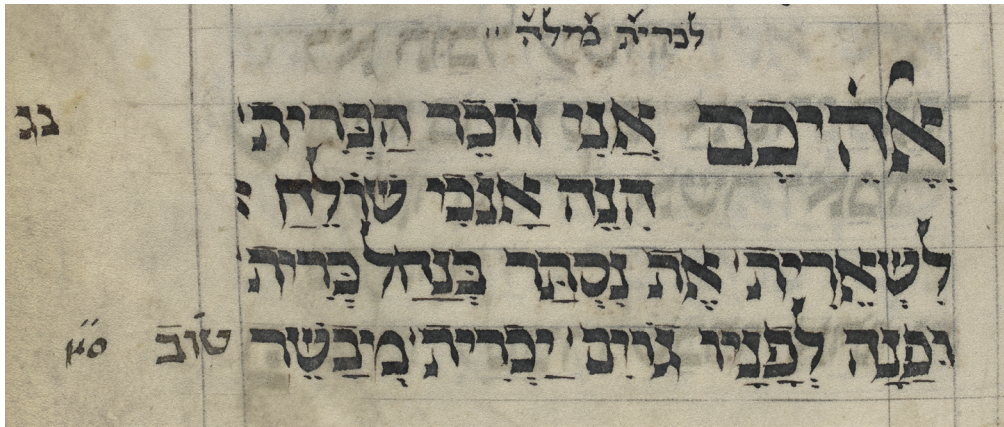 לברית מילה
אלהיכם אני זוכר הברית
הנה אנכי שולח א
לשארית את נסתר בנחל כרית
ופנה לפניו גוים יכרית מבשר טוב